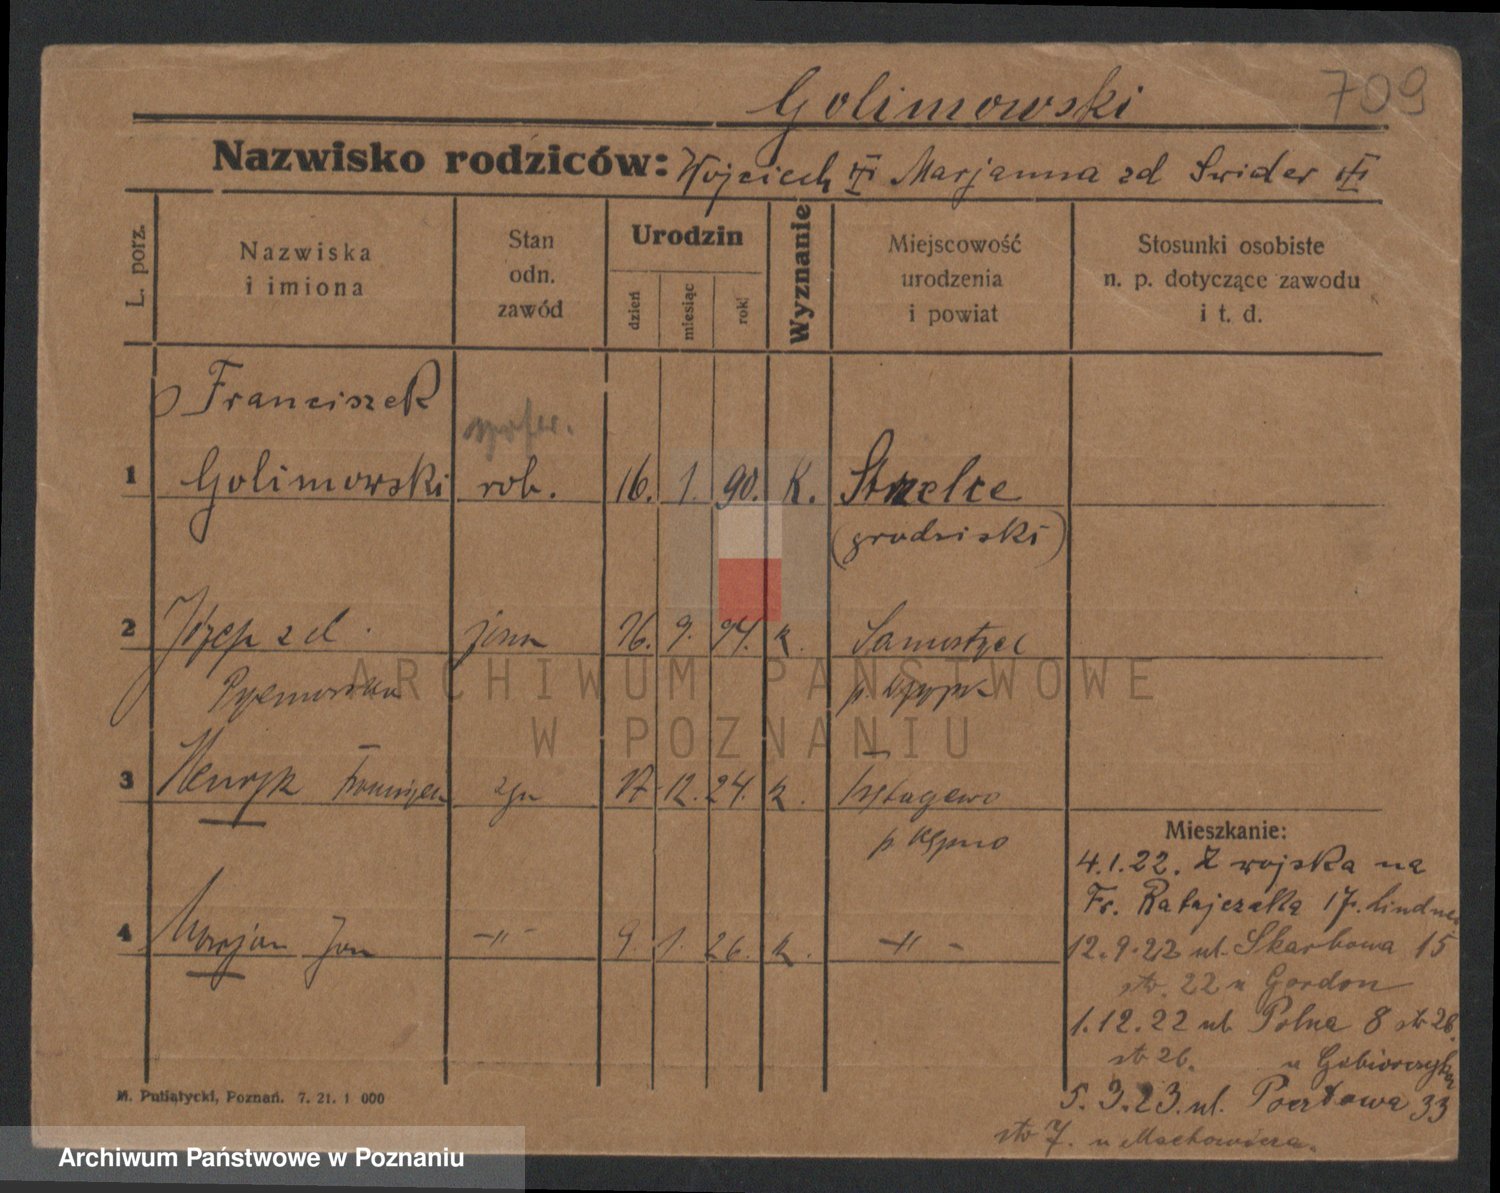 Golimowski
709
Nazwisko rodziców: Wojciech Marjanna zd Swider
L. porz.
Nazwiska i imiona
Stan odn. zawód
Urodzin
dzień
miesiąc
rok
Wyznanie
Miejscowość urodzenia i powiat
Stosunki osobiste n. p. dotyczące zawodu i t. d.
Franciszek
1 Golimowski rob. 16. 1. 90. K. Strzelce
(grodziski)
2 Józefa zd. żona 16. 9. 94. k.
3 Henryk Franciszek syn 17 12. 24. k.
p. Kępno
4 Marjan Jan -"- 9. 1. 26. k. -"-
Mieszkanie:
4.1.22. Z wojska na
Fr. Ratajczaka 17. Lindner
12.9.22 ul. Skarbowa 15
str. 22 u Gordon
1.12.22 ul. Polna 8 str 26.
str 26. u
5.3.23. ul. Pocztowa 33
str 7. u Machowicza.
M. Putiatycki, Poznań. 7. 21. 1 000
ARCHIWUM PAŃSTWOWE
W POZNANIU
Archiwum Państwowe w Poznaniu